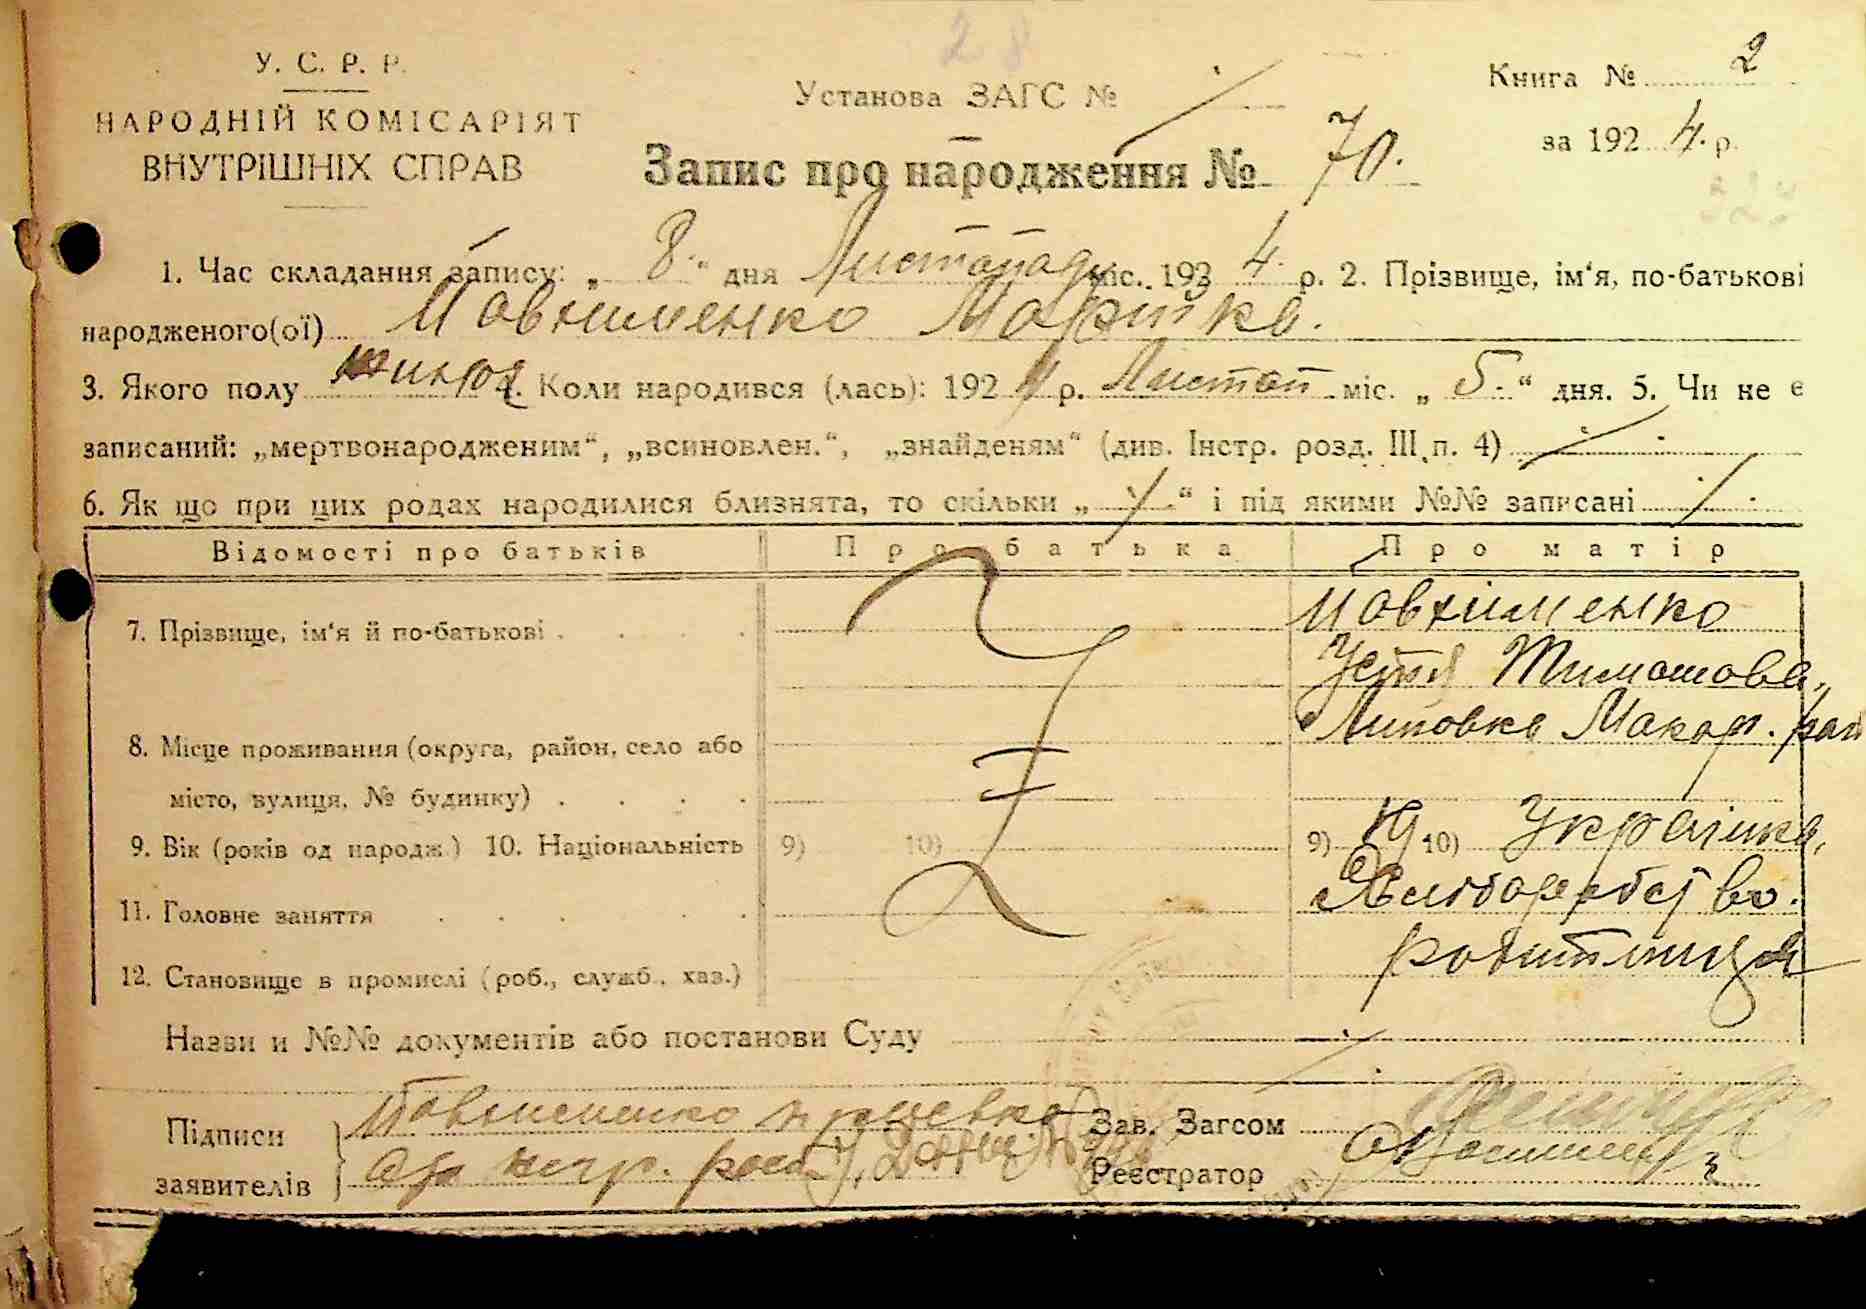 28
У. С. Р. Р.
НАРОДНІЙ КОМІСАРІЯТ
ВНУТРІШНІХ СПРАВ
Установа ЗАГС №
Книга № 2
за 192 4. р.
Запис про народження № 70.
1. Час складання запису: „ 8. “ дня Листопаду міс. 192 4 р. 2. Прізвище, ім‘я, по-батькові
народженого(ої) Марійка.
3. Якого полу жіноч 4. Коли народився (лась): 192 4 р. Листоп міс. „ 5. “ дня. 5. Чи не є
записаний: „мертвонародженим“, „всиновлен.“, „знайденям“ (див. Інстр. розд. III п. 4)
6. Як що при цих родах народилися близнята, то скільки „ “ і під якими №№ записані
Відомості про батьків Про батька Про матір
7. Прізвище, ім‘я й по-батькові
Устя Тимошова,
8. Місце проживання (округа, район, село або Липовка Макар. рай
місто, вулиця, № будинку)
9. Вік (років од народж.) 10. Національність 9) 10) 9) 10) Українка,
11. Головне заняття Хліборобство.
12. Становище в промислі (роб., служб., хаз.)
Назви и №№ документів або постанови Суду
Підписи
заявителів
Зав. Загсом
Реєстратор